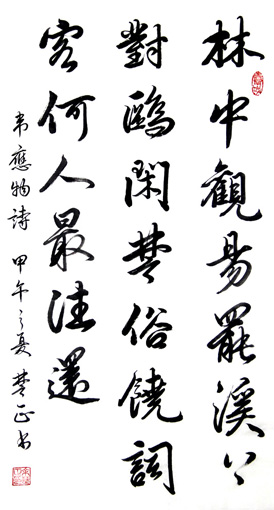 林中觀易罷溪上
對鷗閑楚俗饒詞
客何人最往還
韋應物詩 甲午之夏 楚正书